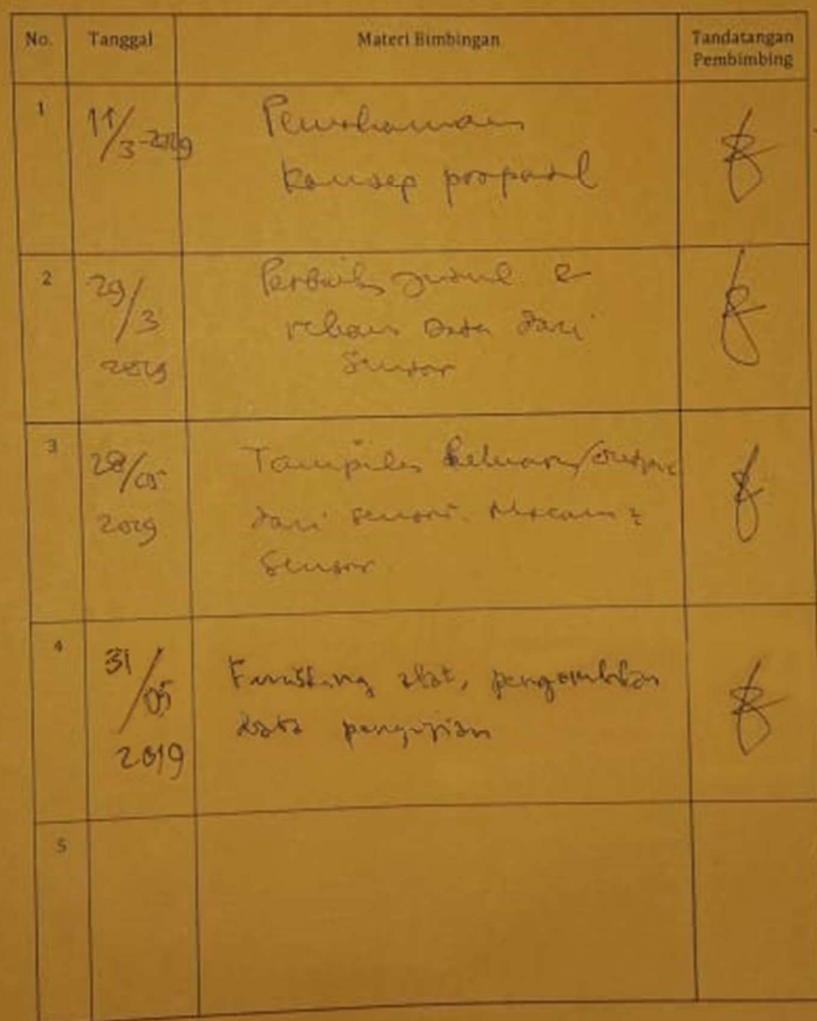 No. Tanggal Materi Bimbingan Tandatangan
Pembimbing
1 11/3-2019
konsep proposal
2 29/3 2019 Perbaiki judul &
data dari
Sensor
3 28/05 2019 Tampilan keluaran/output
dari sensor. Macam2
Sensor
4 31/05 2019 Finishing alat, pengambilan
data pengujian
5